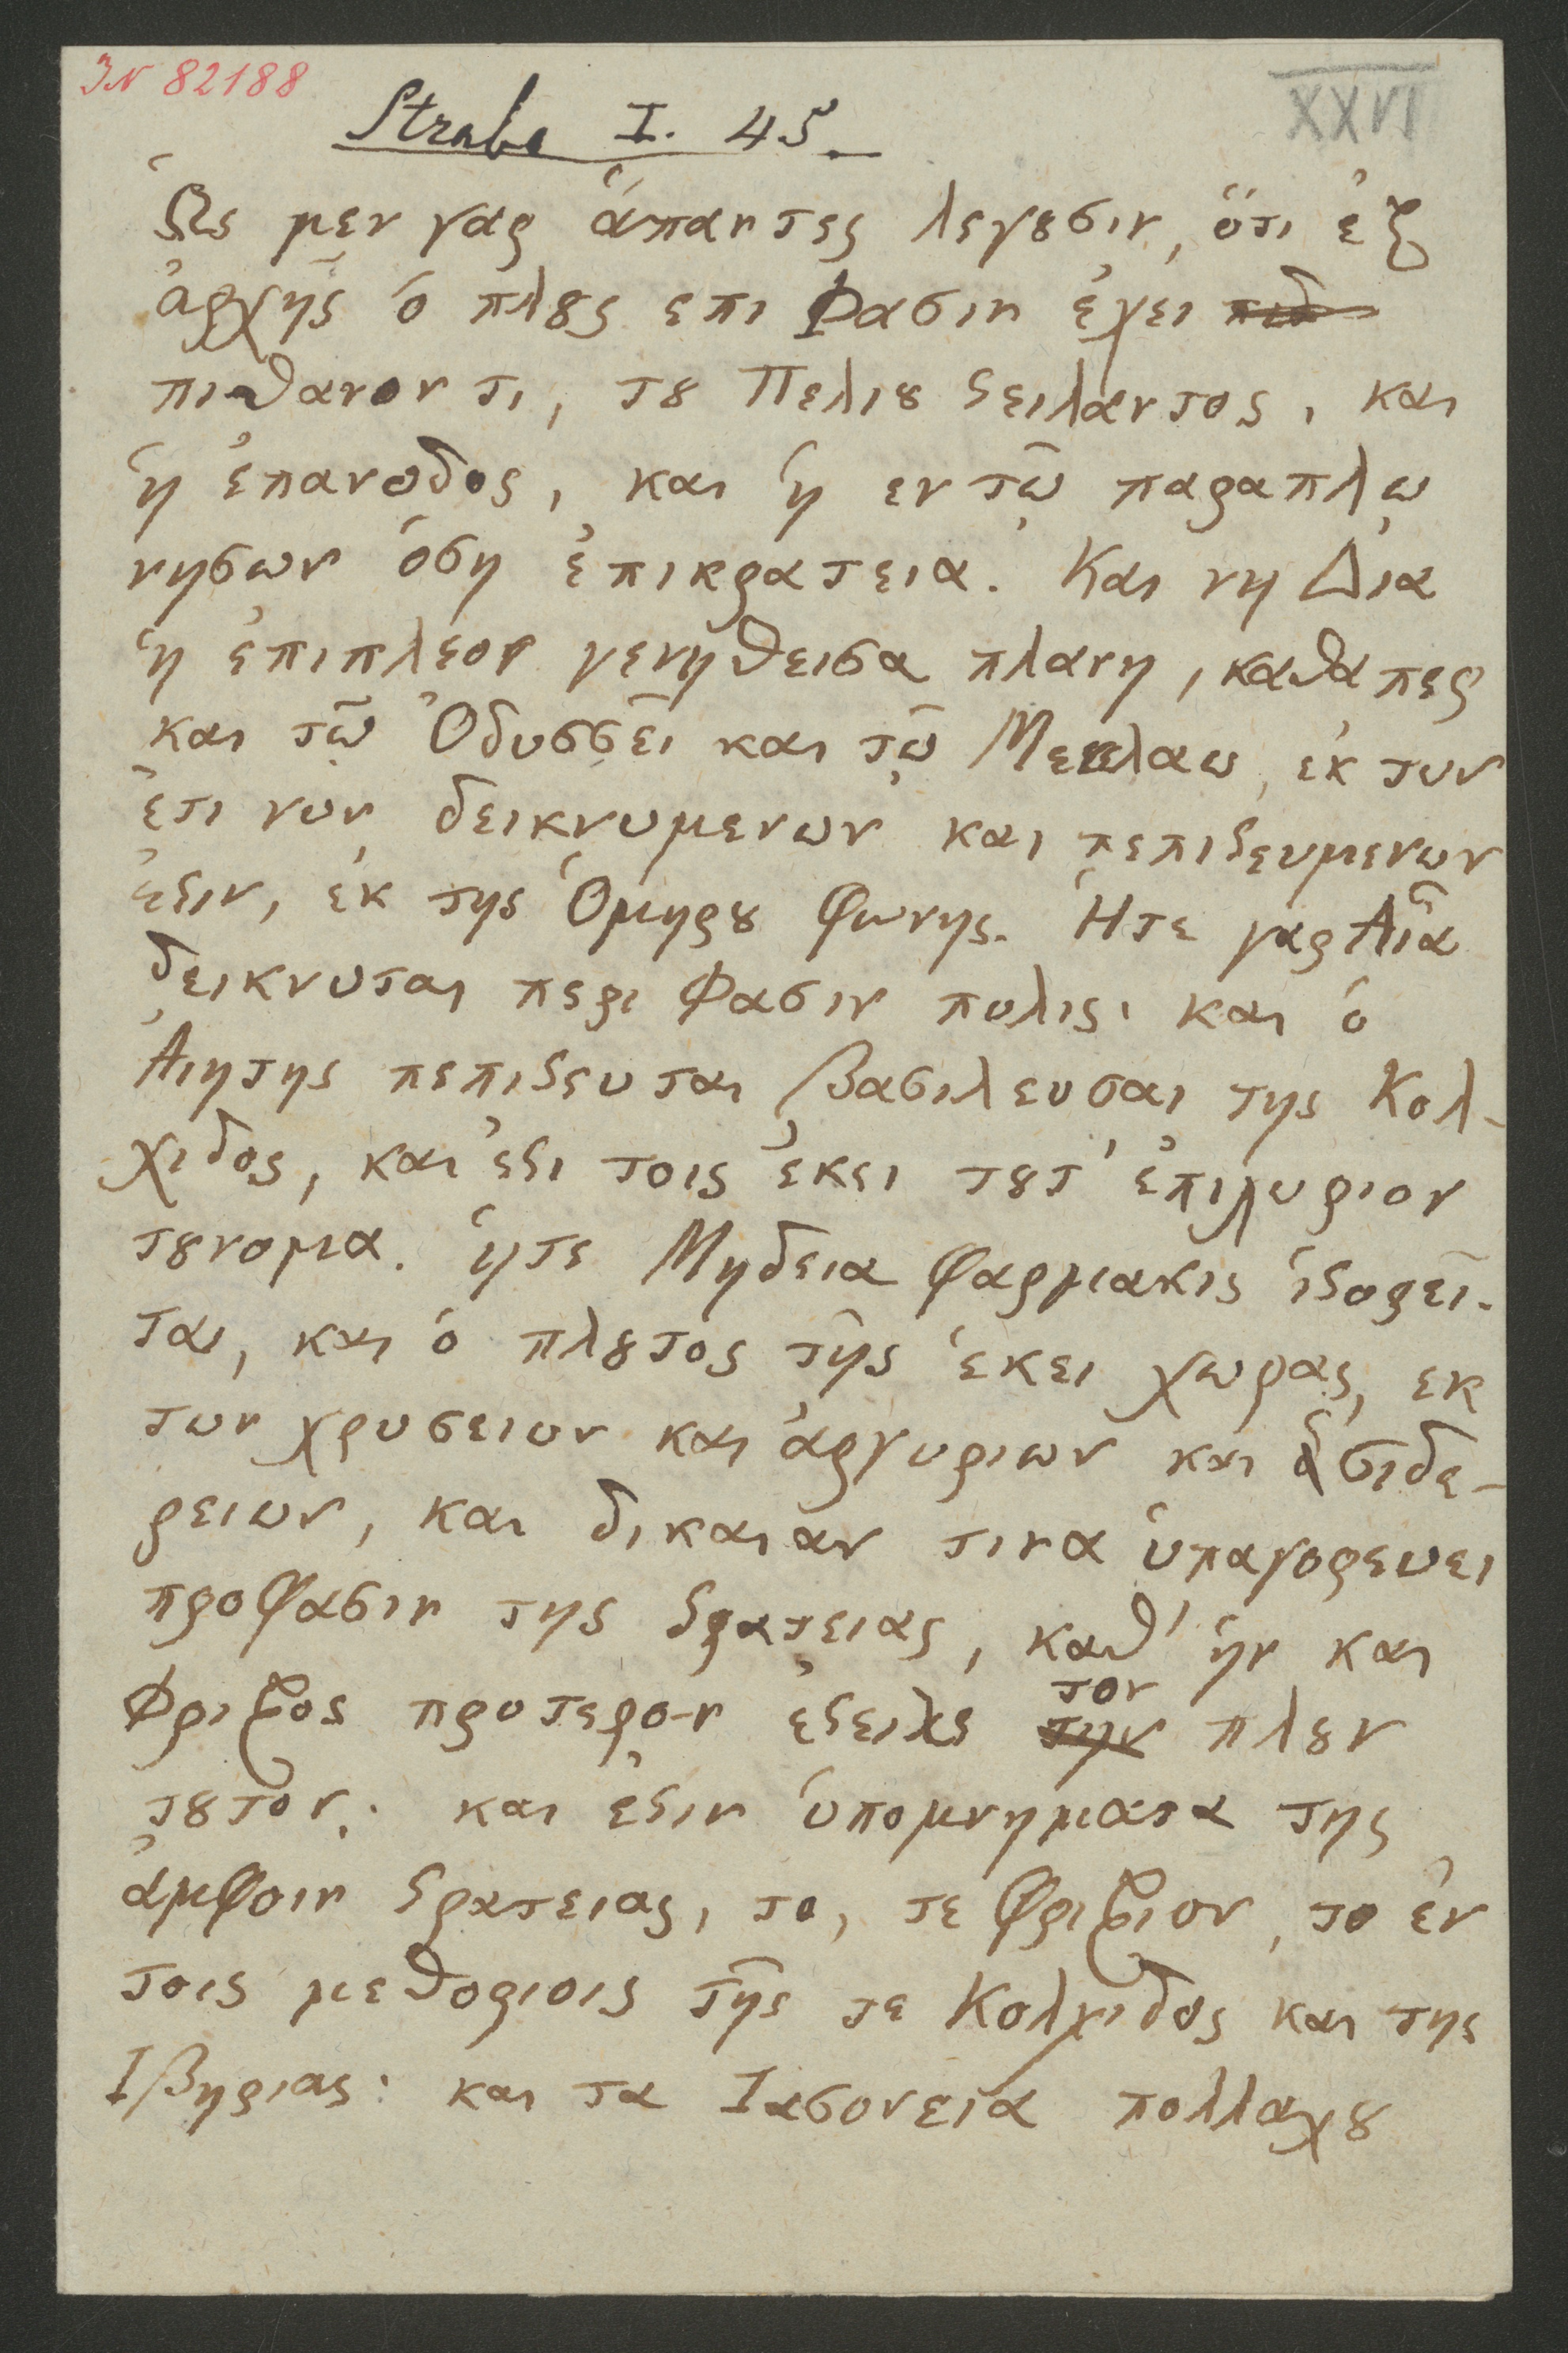 IN 82188
XXVI
Strabo I. 45
Ὡς μεν γας ἁπαντες λεγȣσιν, ὁτι ἐξ
ἀρχῆς ὁ πλȣς επι Φασιν ἐχει πιθ
πιθανον τι, τȣ Πελιȣ ϛειλαντος, και
ἡ ἐπανοδος, και ἡ εν τῷ παραπλω
νησων ὁση ἐπικρατεια. Και νη Δια
ἡ ἐπιπλεον γενηθεισα πλανη, καθαπερ
και τῷ Ὀδυσσεῖ και τῷ Μενελαω, ἐκ των
ἐτι νυν δεικνυμενων και πεπιϛευμενων
ἐϛιν, ἐκ της Ὁμηρȣ φωνης. Ἡτε γαρ Αἶα
δεικνυται περι Φασιν πολις· και ὁ
Ἀιητης πεπιϛευται βασιλευσαι της Κολ-
χιδος, και ἐϛι τοις ἐκει τȣτ' ἐπιχωριον
τȣνομα. ἡτε Μηδεια φαρμακις ἱϛορεῖ-
ται, και ὁ πλȣτος τῆς ἐκει χωρας, εκ
των χρυσειων και ἀργυριων και σιδε-
ρειων, και δικαιαν τινα ὑπαγορευει
προφασιν της ϛρατειας, καθ' ἡν και
Φριξος προτερον ἐϛειλε την τον πλȣν
τȣτον. και ἐϛιν ὑπομνηματα της
ἀμφοιν ϛρατειας, το, τε Φριξιον, το ἐν
τοις μεθοριοις τῆς τε Κολχιδος και της
Ιβηριας: και τα Ιασονεια πολλαχȣ